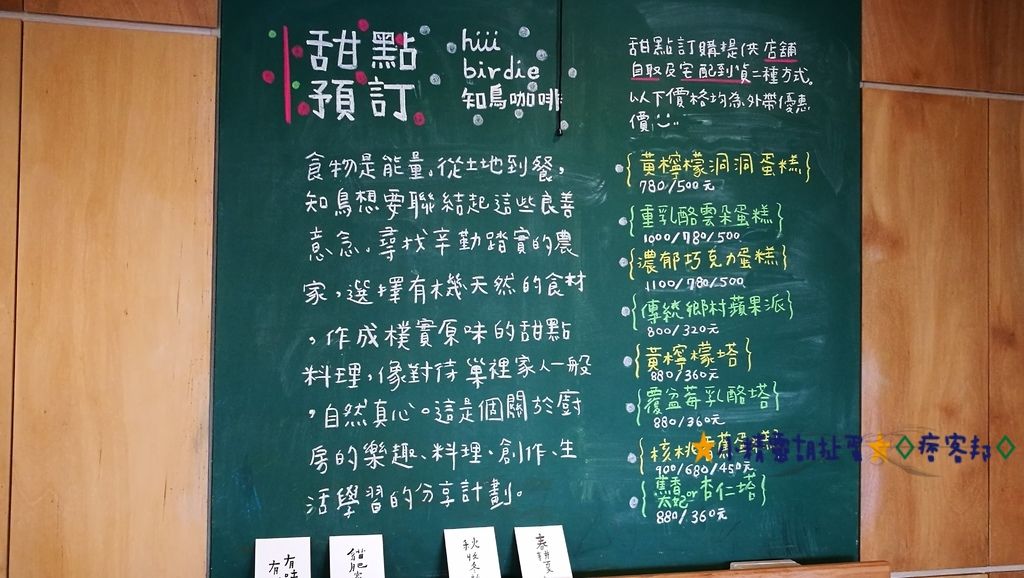 甜點
預訂
hiii
birdie
知鳥咖啡
食物是能量,從土地到餐,
知鳥想要聯結起這些良善
意念。尋找辛勤踏實的農
家,選擇有機天然的食材
,作成樸實原味的甜點
料理,像對待巢裡家人一般
,自然真心。這是個關於廚
房的樂趣、料理、創作、生
活學習的分享計劃。
甜點訂購提供店舖
自取及宅配到貨二種方式。
以下價格均為外帶優惠
價
{黃檸檬洞洞蛋糕}
780/500元
{重乳酪雲朵蛋糕}
1000/780/500
{濃郁巧克力蛋糕}
1100/780/500
{傳統鄉村蘋果派}
800/320元
{黃檸檬塔}
880/360元
{覆盆莓乳酪塔}
880/360元
{核桃
900/680/450元
杏仁塔}
880/360元
痞客邦